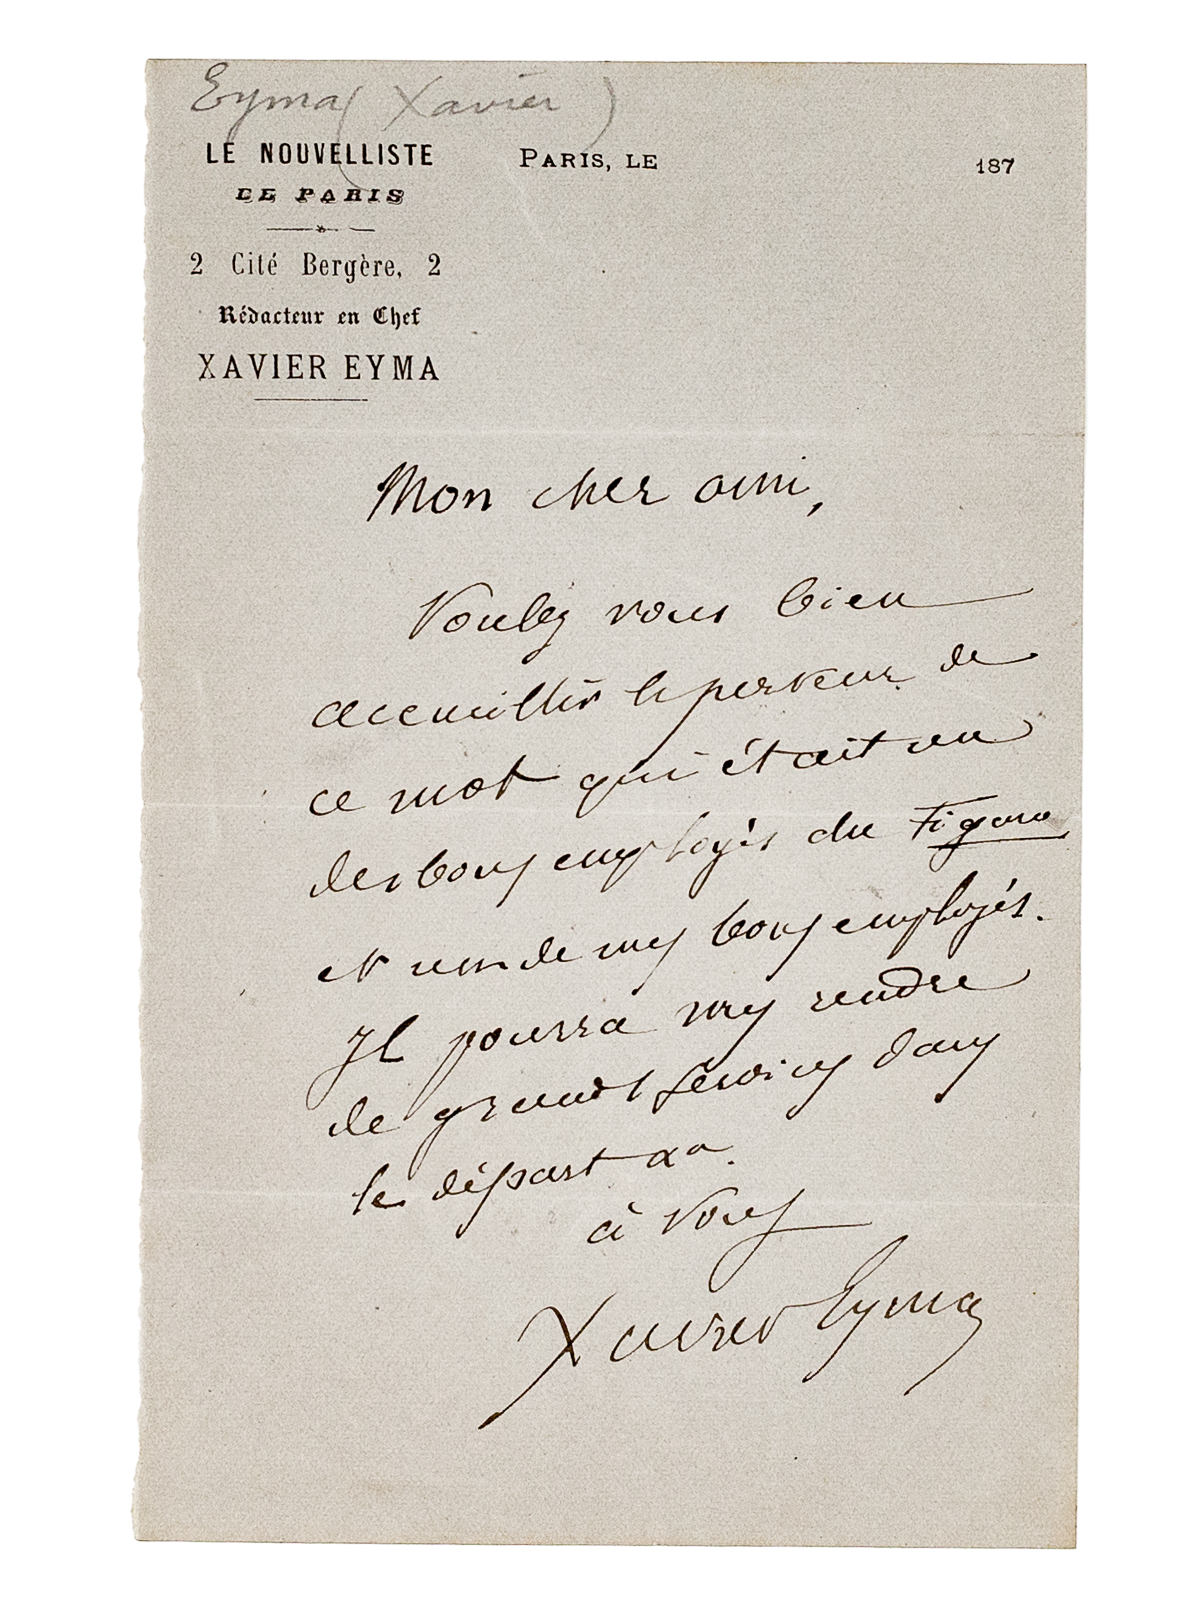 Eyma (Xavier)
LE NOUVELLISTE
DE PARIS
2 Cité Bergère, 2
Rédacteur en Chef
XAVIER EYMA
PARIS, LE 187
Mon cher ami,
Voulez vous bien
accueillir le porteur de
ce mot qui était un
des bons employés du Figaro
et un de mes bons employés.
Il pourra vous rendre
de grands services dans
le départ
à vous
Xavier Eyma